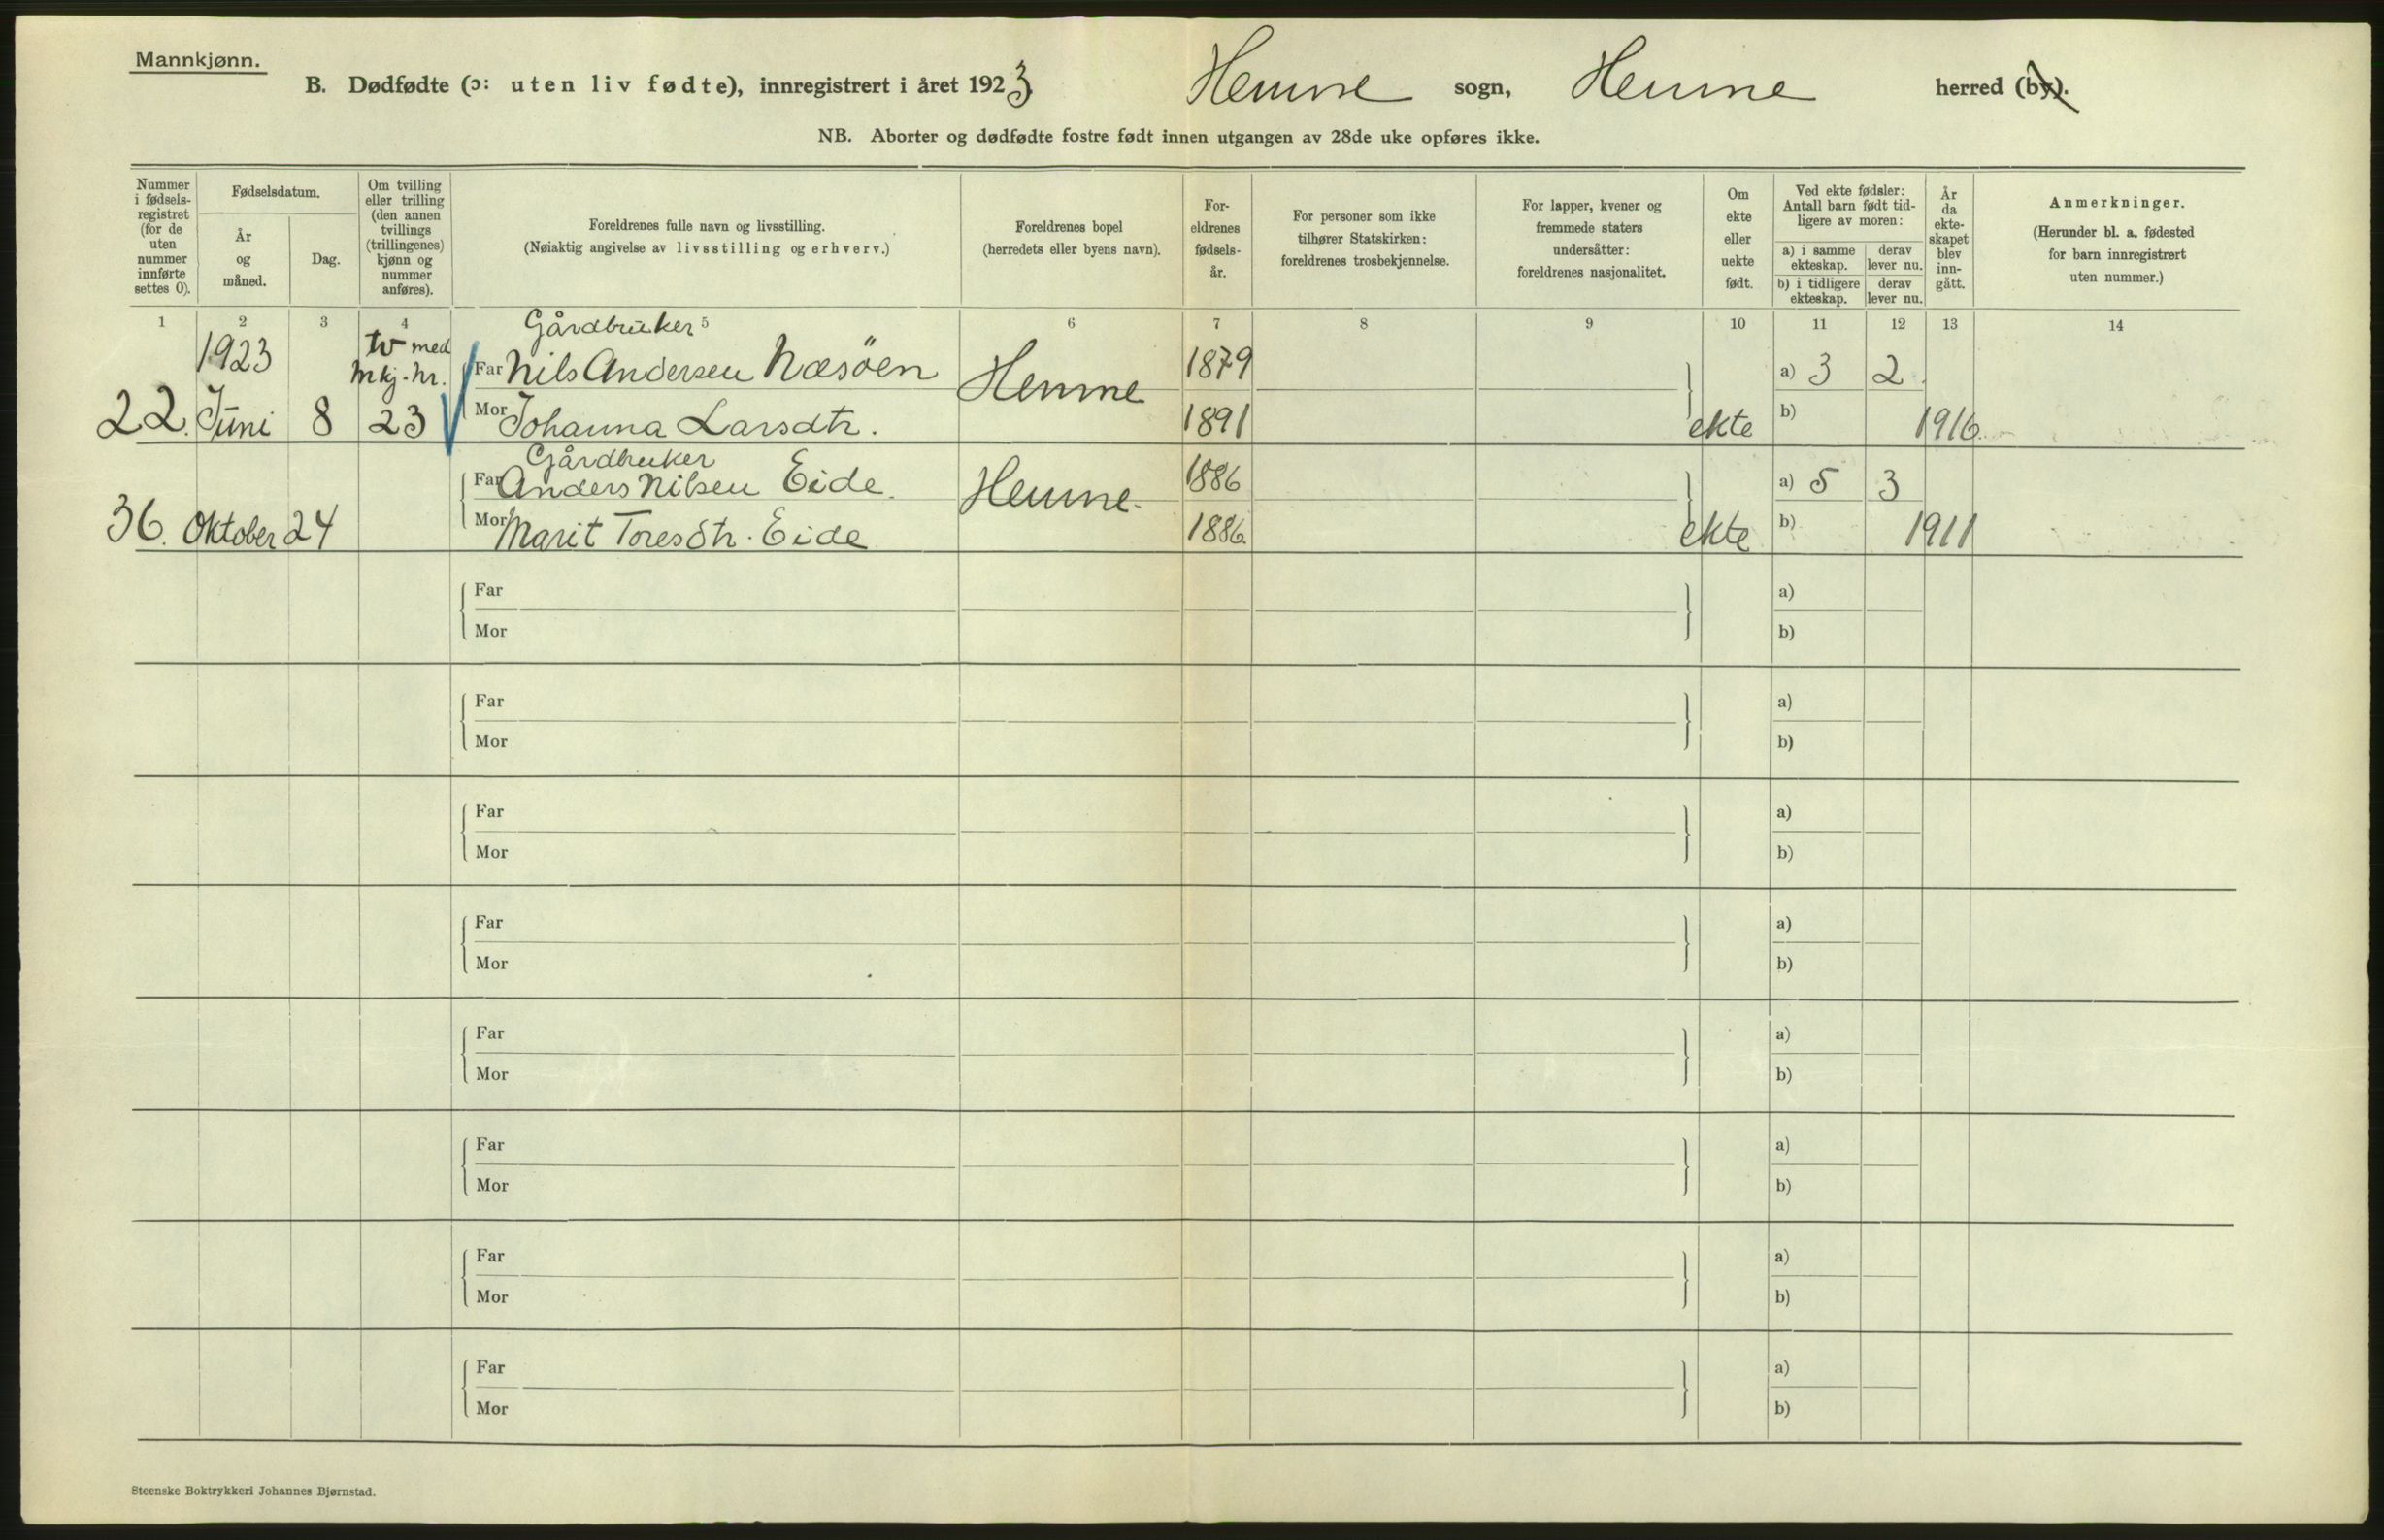 Mannkjønn.
B. Dødfødte (ɔ: uten liv fødte), innregistrert i året 1923 Hemne sogn, Hemne herred (by).
NB. Aborter og dødfødte fostre født innen utgangen av 28de uke opføres ikke.
Nummer i fødsels-registret (for de uten nummer innførte settes 0).
Fødselsdatum.
År og måned.
Dag.
Om tvilling eller trilling (den annen tvillings (trillingenes) kjønn og nummer anføres).
Foreldrenes fulle navn og livsstilling.
(Nøiaktig angivelse av livsstilling og erhverv.)
Foreldrenes bopel
(herredets eller byens navn).
For-eldrenes fødsels-år.
For personer som ikke tilhører Statskirken: foreldrenes trosbekjennelse.
For lapper, kvener og fremmede staters undersåtter: foreldrenes nasjonalitet.
Om ekte eller uekte født.
Ved ekte fødsler: Antall barn født tid-ligere av moren:
a) i samme ekteskap.
derav lever nu.
b) i tidligere ekteskap.
derav lever nu.
År da ekte-skapet blev inn-gått.
Anmerkninger.
(Herunder bl. a. fødested for barn innregistrert uten nummer.)
1 2 3 4 5 6 7 8 9 10 11 12 13 14
Gårdbruker
1923 tv med
mkj. nr. Far Nils Andersen Næsöen Hemne 1879 a) 3 2
22. Juni 8 23 Mor Johanna Larsdtr. 1891 ekte b) 1916
Gårdbruker
Far Anders Nilsen Eide. Hemne. 1886 a) 5 3
36. Oktober 24 Mor Marit Toresdtr. Eide 1886. ekte b) 1911
Far a)
Mor b)
Far a)
Mor b)
Far a)
Mor b)
Far a)
Mor b)
Far a)
Mor b)
Far a)
Mor b)
Far a)
Mor b)
Far a)
Mor b)
Steenske Boktrykkeri Johannes Bjørnstad.